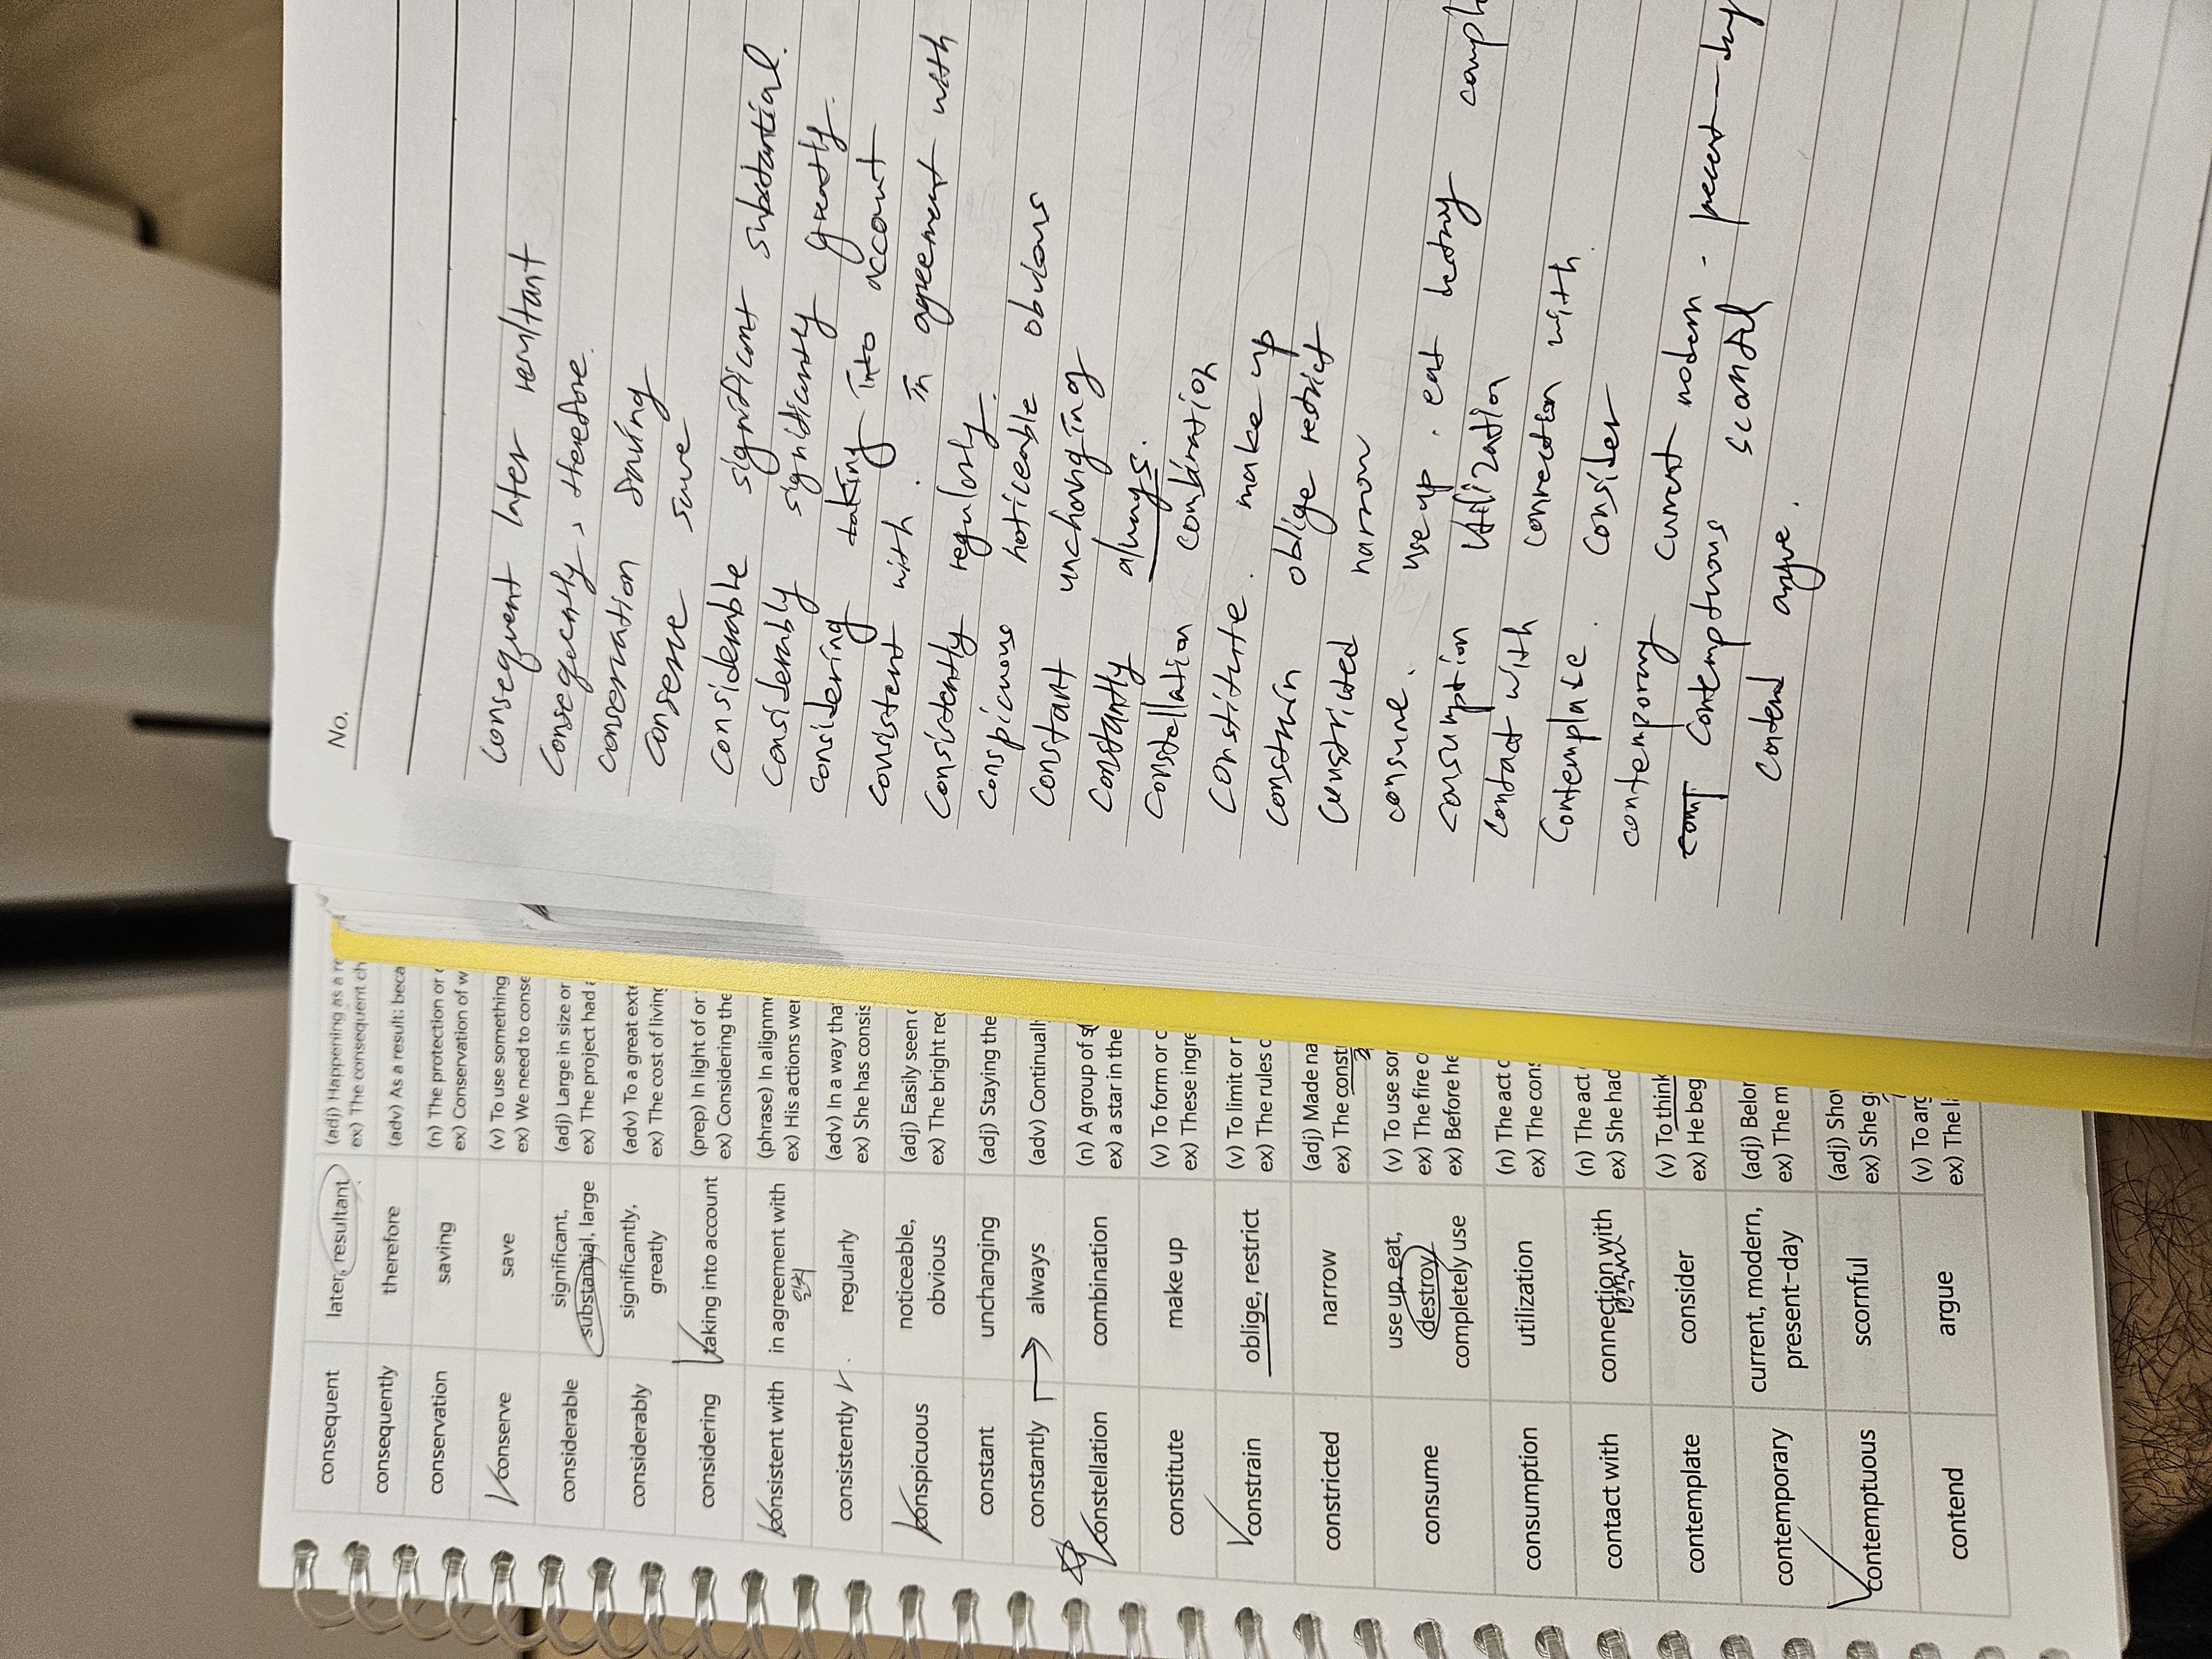 consequent later, resultant (adj) Happening as a re
ex) The consequent ch
consequently therefore (adv) As a result; beca
conservation saving (n) The protection or
ex) Conservation of w
conserve save (v) To use something
ex) We need to conse
considerable significant, substantial, large (adj) Large in size or
ex) The project had a
considerably significantly, greatly (adv) To a great exte
ex) The cost of living
considering taking into account (prep) In light of or
ex) Considering the
consistent with in agreement with 일치 (phrase) In alignme
ex) His actions wer
consistently regularly (adv) In a way tha
ex) She has consis
conspicuous noticeable, obvious (adj) Easily seen
ex) The bright rec
constant unchanging (adj) Staying the
constantly always (adv) Continuall
constellation combination (n) A group of s
ex) a star in the
constitute make up (v) To form or c
ex) These ingre
constrain oblige, restrict (v) To limit or r
ex) The rules c
constricted narrow (adj) Made na
ex) The const
consume use up, eat, destroy, completely use (v) To use sor
ex) The fire c
ex) Before he
consumption utilization (n) The act c
ex) The cons
contact with connection with (n) The act
ex) She had
contemplate consider (v) To think
ex) He beg
contemporary current, modern, present-day (adj) Belor
ex) The m
contemptuous scornful (adj) Shov
ex) She g
contend argue (v) To arg
ex) The la
No.
consequent later resultant
consequently, therefore.
conservation saving
conserve save
considerable significant substantial.
considerably significantly greatly.
considering taking into account
consistent with. in agreement with
consistently regularly.
conspicuous noticeable obvious
constant unchanging
constantly always.
constellation combination
constitute. make up
constrain oblige restrict
constricted narrow
consume. use up. eat destroy compl
consumption utilization
contact with connection with.
contemplate. consider
contemporary current modern - present-day
cont contemptuous scornful
contend argue.